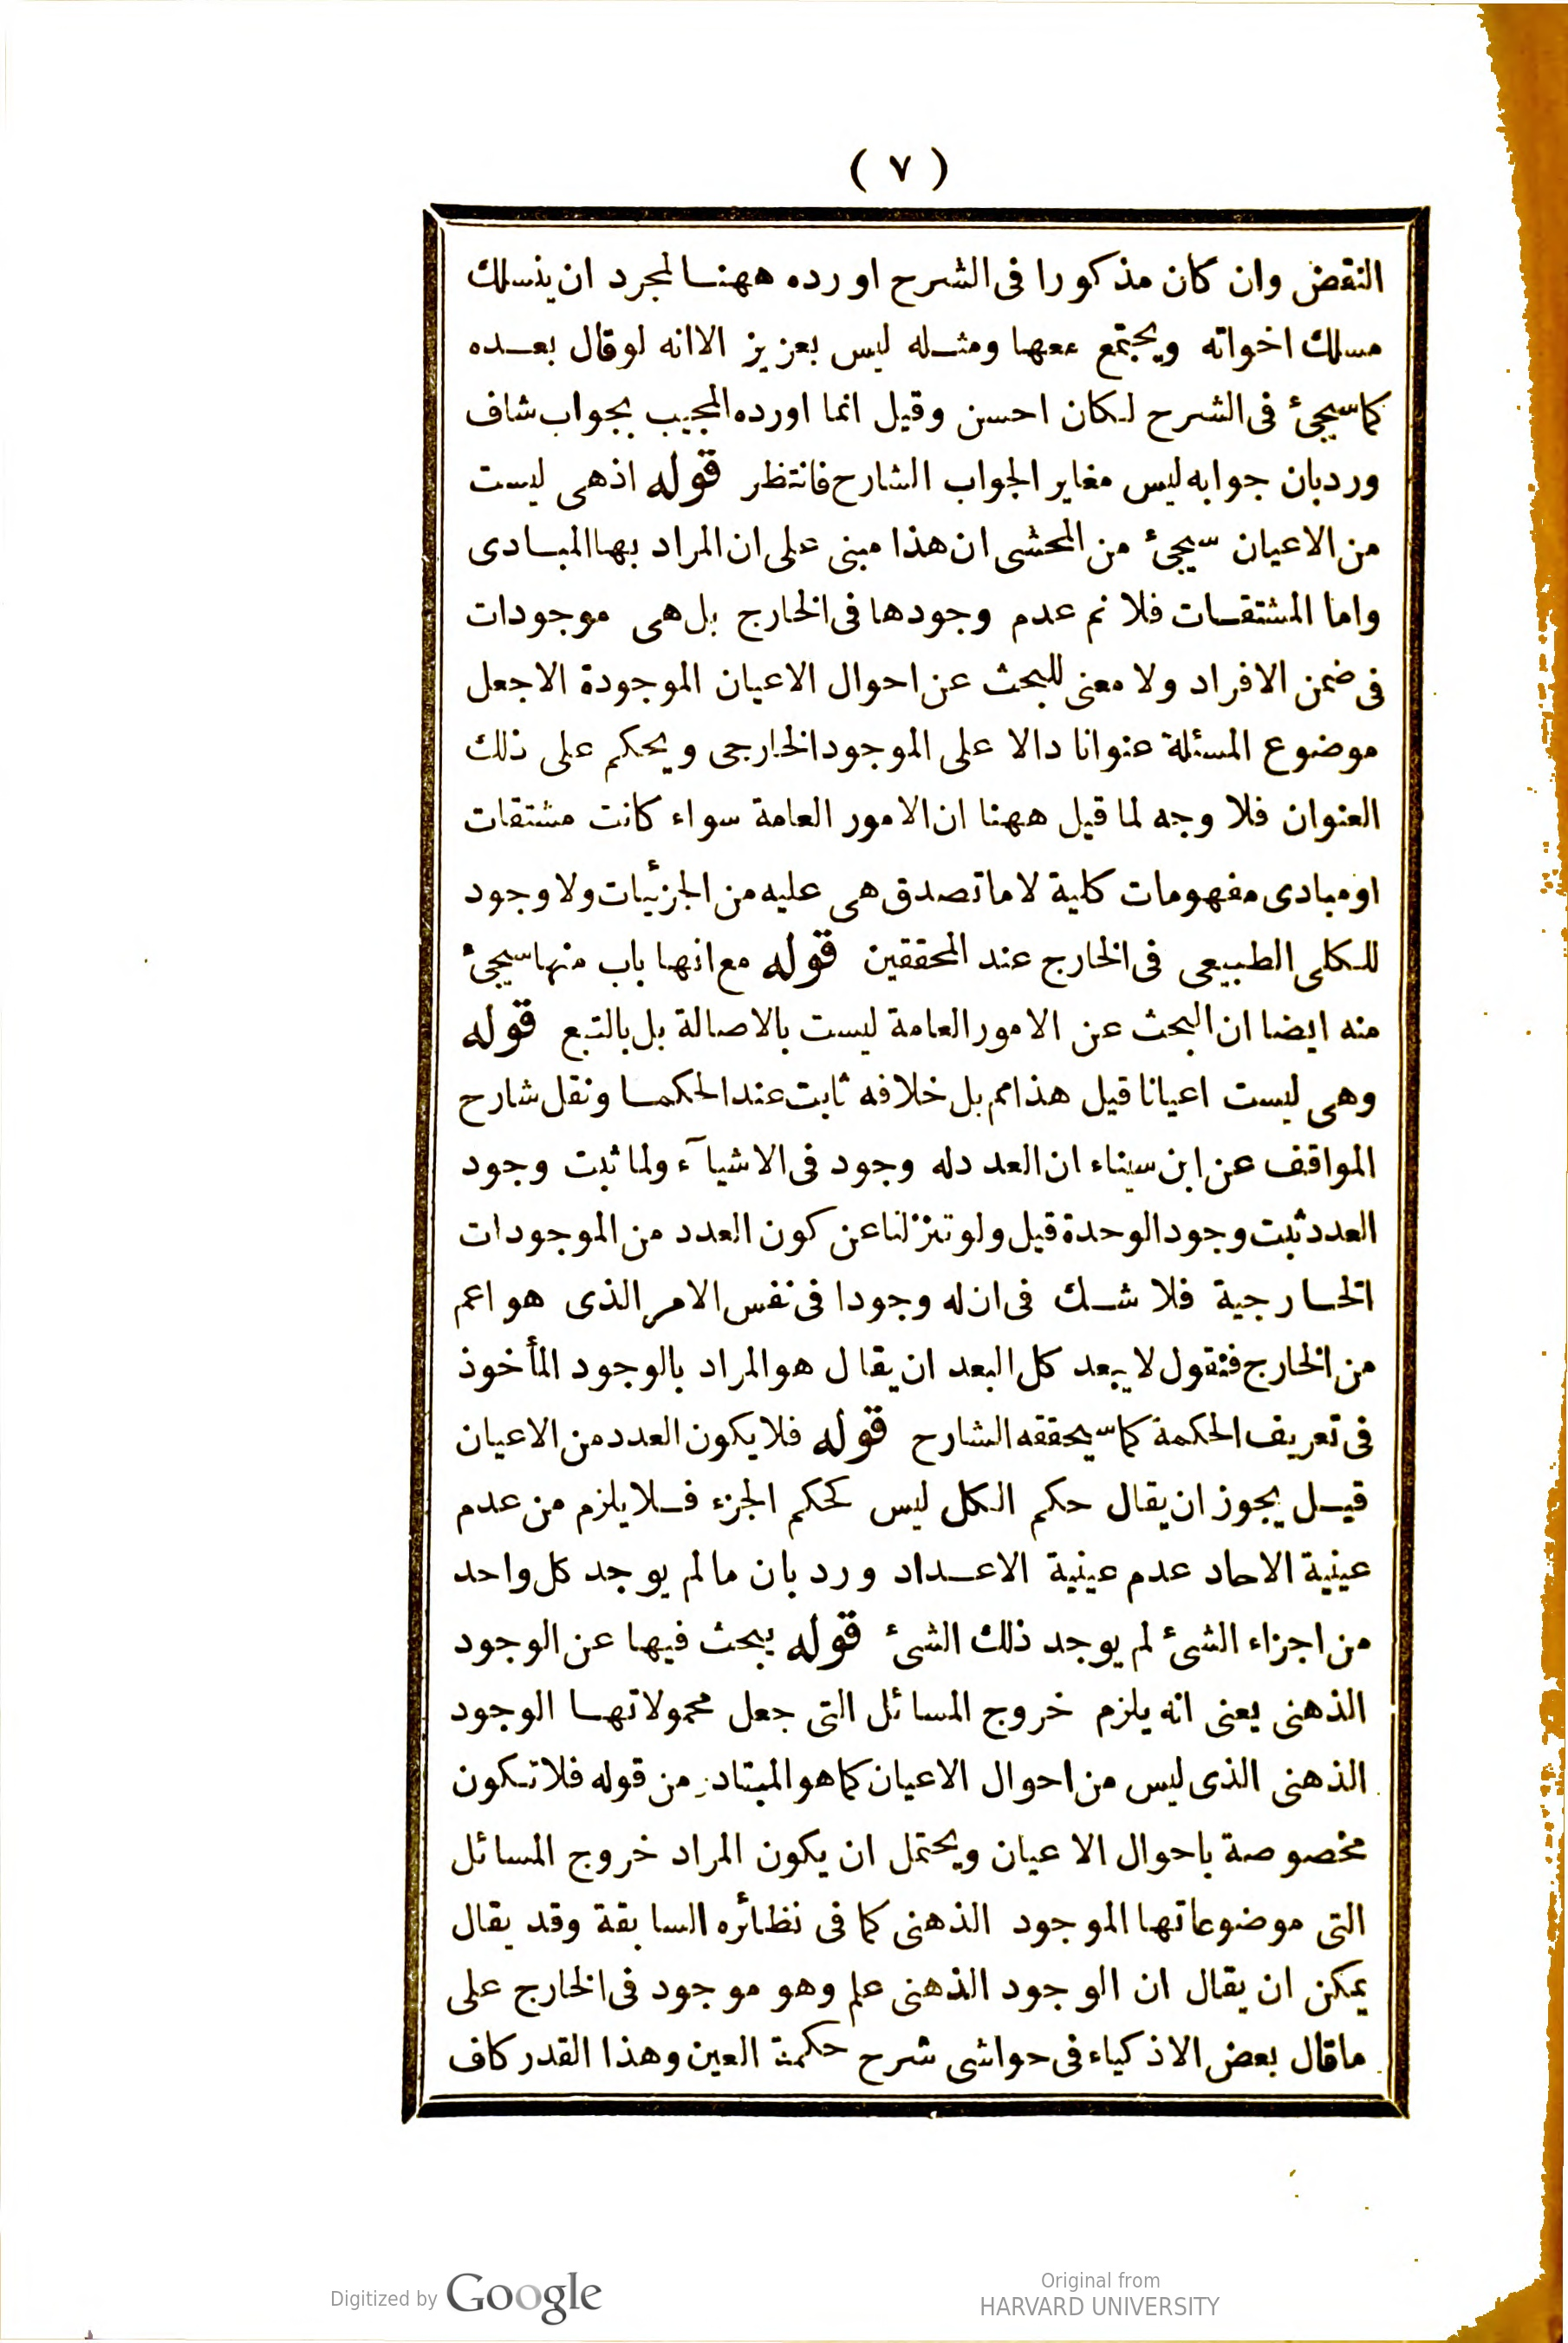 ( ٧ )
النقض وان كان مذكورا فى الشرح اورده ههنا لمجرد ان ينسلك
مسلك اخواته ويجتمع معها ومثله ليس بعزيز الاانه لوقال بعده
كماسيجئ فى الشرح لكان احسن وقيل انما اورده المجيب بجواب شاف
وردبان جوابه ليس مغاير الجواب الشارح فانتظر قوله اذهى ليست
من الاعيان سيجئ من المحشى ان هذا مبنى على ان المراد بها المبادى
واما المشتقات فلا نم عدم وجودها فى الخارج بل هى موجودات
فى ضمن الافراد ولا معنى للبحث عن احوال الاعيان الموجودة الاجعل
موضوع المسئلة عنوانا دالا على الموجود الخارجى ويحكم على ذلك
العنوان فلا وجه لما قيل ههنا ان الامور العامة سواء كانت مشتقات
اومبادى مفهومات كلية لا ماتصدق هى عليه من الجزئيات ولا وجود
للكلى الطبيعى فى الخارج عند المحققين قوله مع انها باب منها سيجئ
منه ايضا ان البحث عن الامور العامة ليست بالاصالة بل بالتبع قوله
وهى ليست اعيانا قيل هذا مم بل خلافه ثابت عند الحكما ونقل شارح
المواقف عن ابن سيناء ان العدد له وجود فى الاشيآء ولما ثبت وجود
العدد ثبت وجود الوحدة قيل ولو تنزلنا عن كون العدد من الموجودات
الخارجية فلا شك فى ان له وجودا فى نفس الامر الذى هو اعم
من الخارج فنقول لا يبعد كل البعد ان يقال هو المراد بالوجود المأخوذ
فى تعريف الحكمة كماسيحققه الشارح قوله فلا يكون العدد من الاعيان
قيل يجوز ان يقال حكم الكل ليس كحكم الجزء فلا يلزم من عدم
عينية الاحاد عدم عينية الاعداد ورد بان مالم يوجد كل واحد
من اجزاء الشئ لم يوجد ذلك الشئ قوله يبحث فيها عن الوجود
الذهنى يعنى انه يلزم خروج المسائل التى جعل محمولاتها الوجود
الذهنى الذى ليس من احوال الاعيان كماهو المبتادر من قوله فلا تكون
مخصوصة باحوال الاعيان ويحتمل ان يكون المراد خروج المسائل
التى موضوعاتها الموجود الذهنى كما فى نظائره السابقة وقد يقال
يمكن ان يقال ان الوجود الذهنى علم وهو موجود فى الخارج على
ماقال بعض الاذكياء فى حواشى شرح حكمة العين وهذا القدر كاف
Digitized by Google
Original from
HARVARD UNIVERSITY